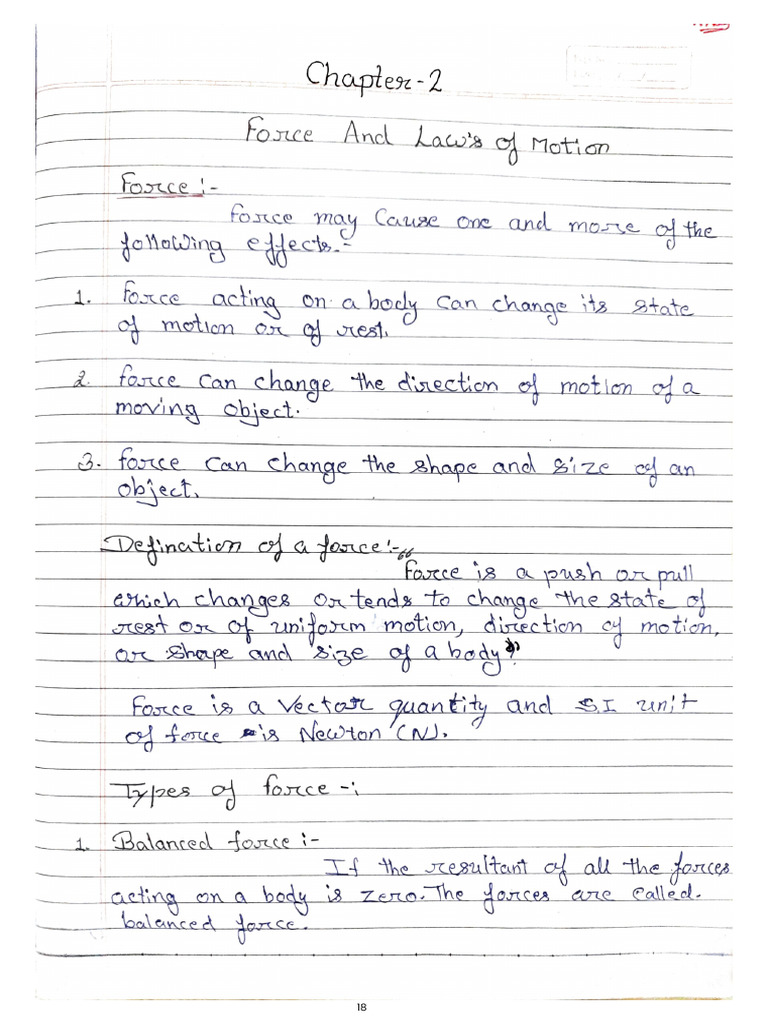 Chapter-2
Force And Law's of Motion
Force :-
Force may Cause one and more of the
following effects.-
1. Force acting on a body can change its state
of motion or of rest.
2. force can change the direction of motion of a
moving object.
3. force can change the shape and size of an
object.
Defination of a force:-"
Force is a push or pull
which changes or tends to change the state of
rest or of uniform motion, direction of motion,
or shape and size of a body".
Force is a Vector quantity and S.I unit
of force is Newton (N).
Types of force -:
1. Balanced force :-
If the resultant of all the forces
acting on a body is zero. The forces are called.
balanced force.
18